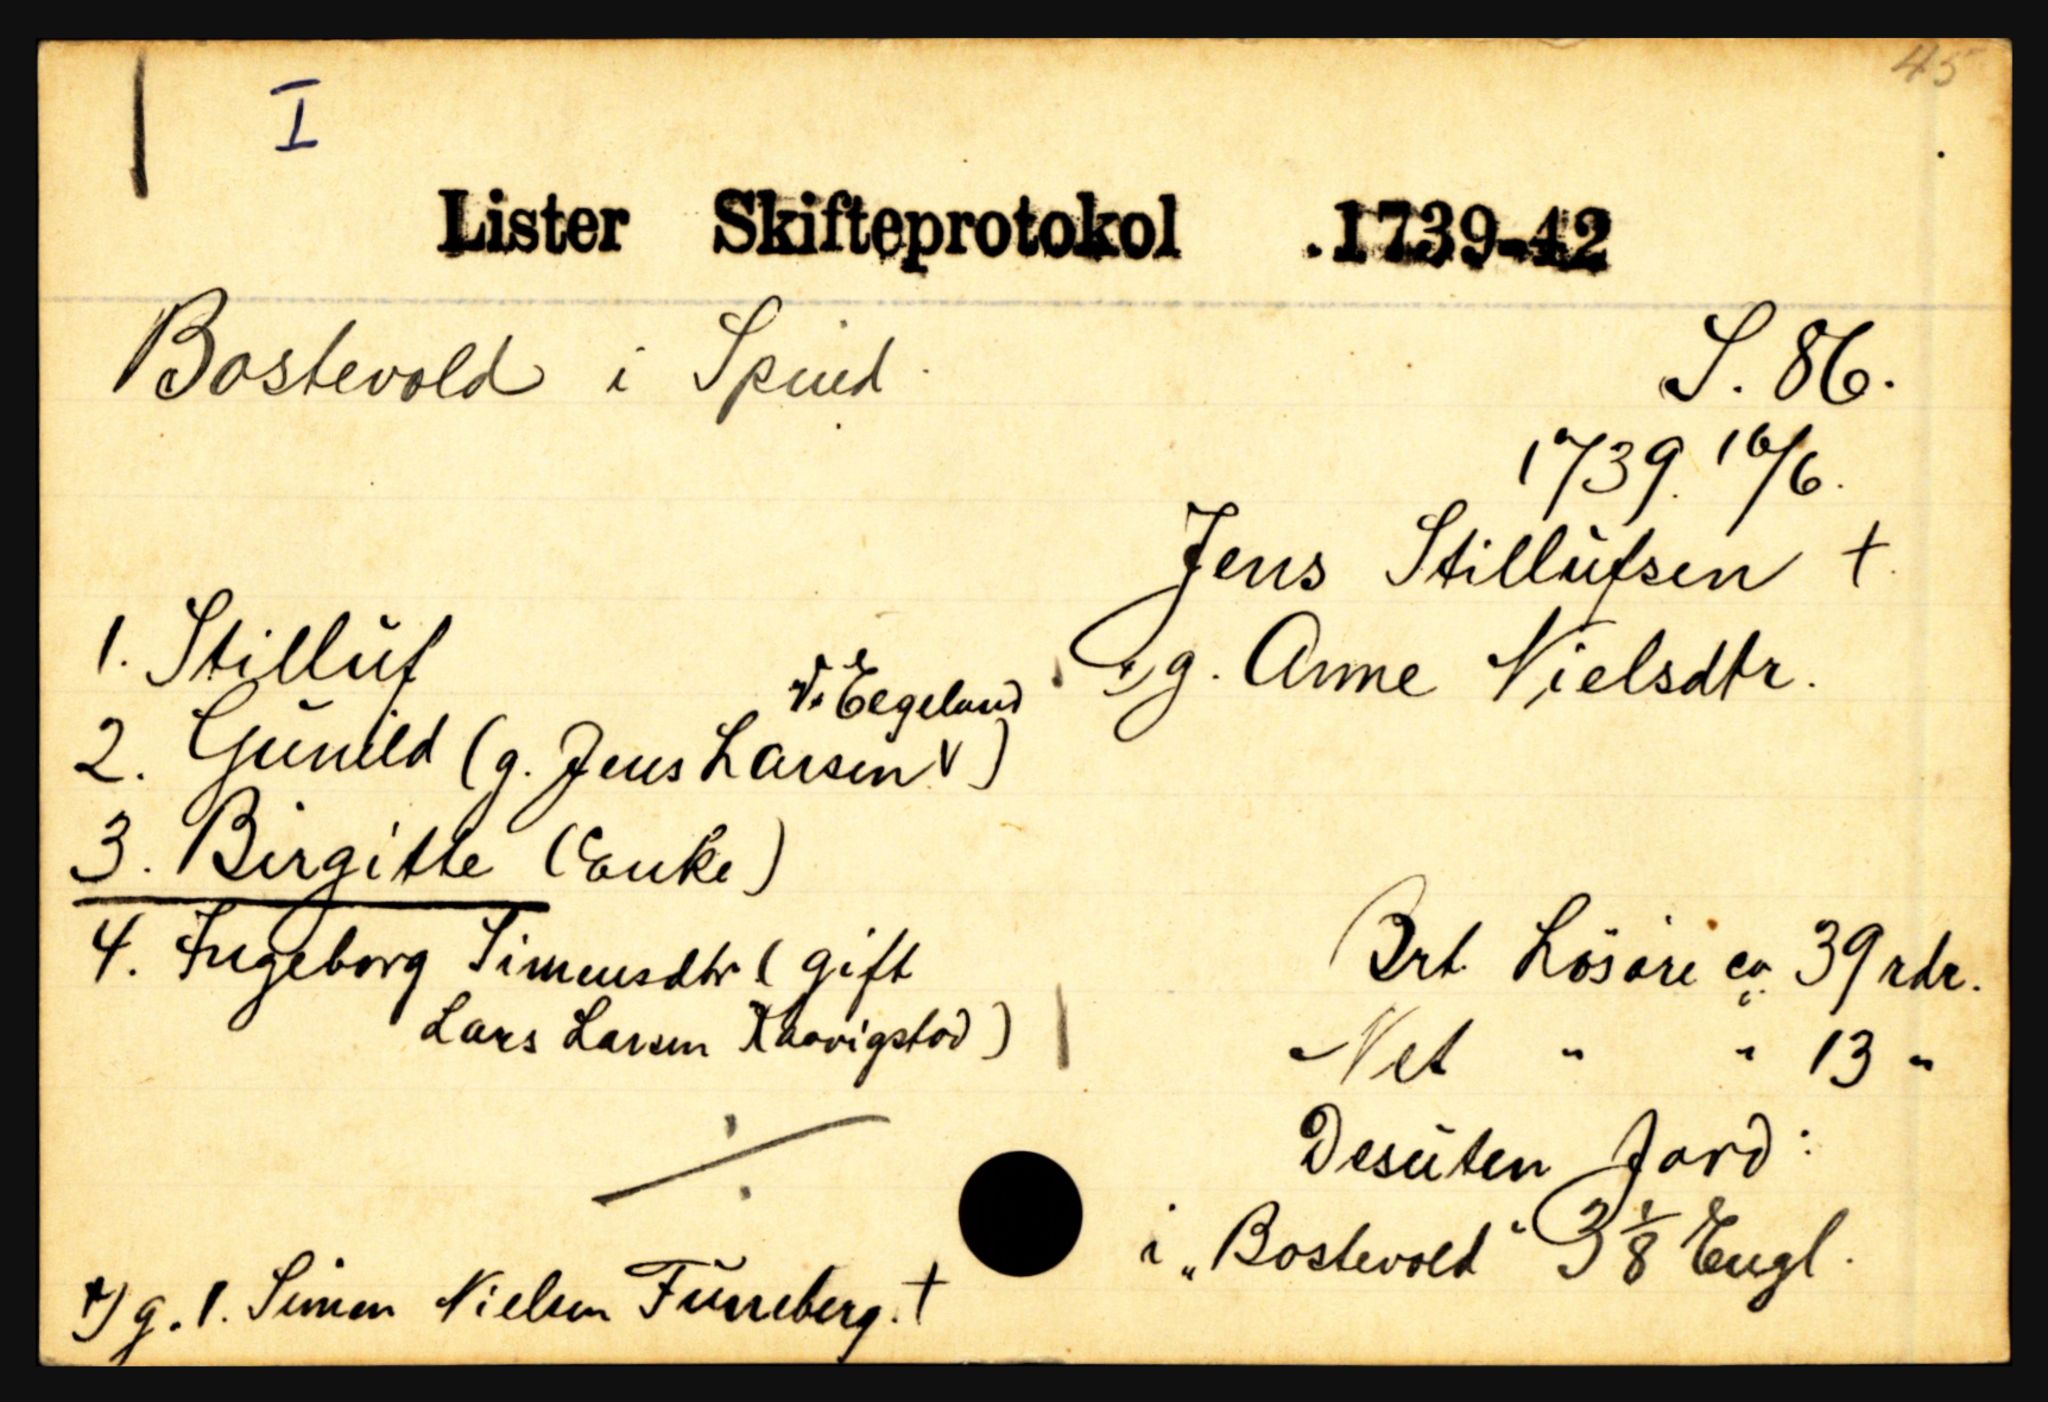 45
I
Lister Skifteprotokol .1739-42
Bostevold i Spind.
S. 86.
1739. 16/6.
Jens Stillufsen †.
x) g. Anne Nielsdtr.
1. Stilluf
V. Eegeland
2. Gunild (g. Jens Larsen v)
3. Birgitte (Enke)
4. Ingeborg Simensdtr ( gift
Lars Larsen )
Brt. Lösöre ca. 39 rdr.
Net " " 13 "
Desuten Jord:
i „Bostevold" 3 1/8 Engl.
x) g. 1. Simen Nielsen Funneberg. †